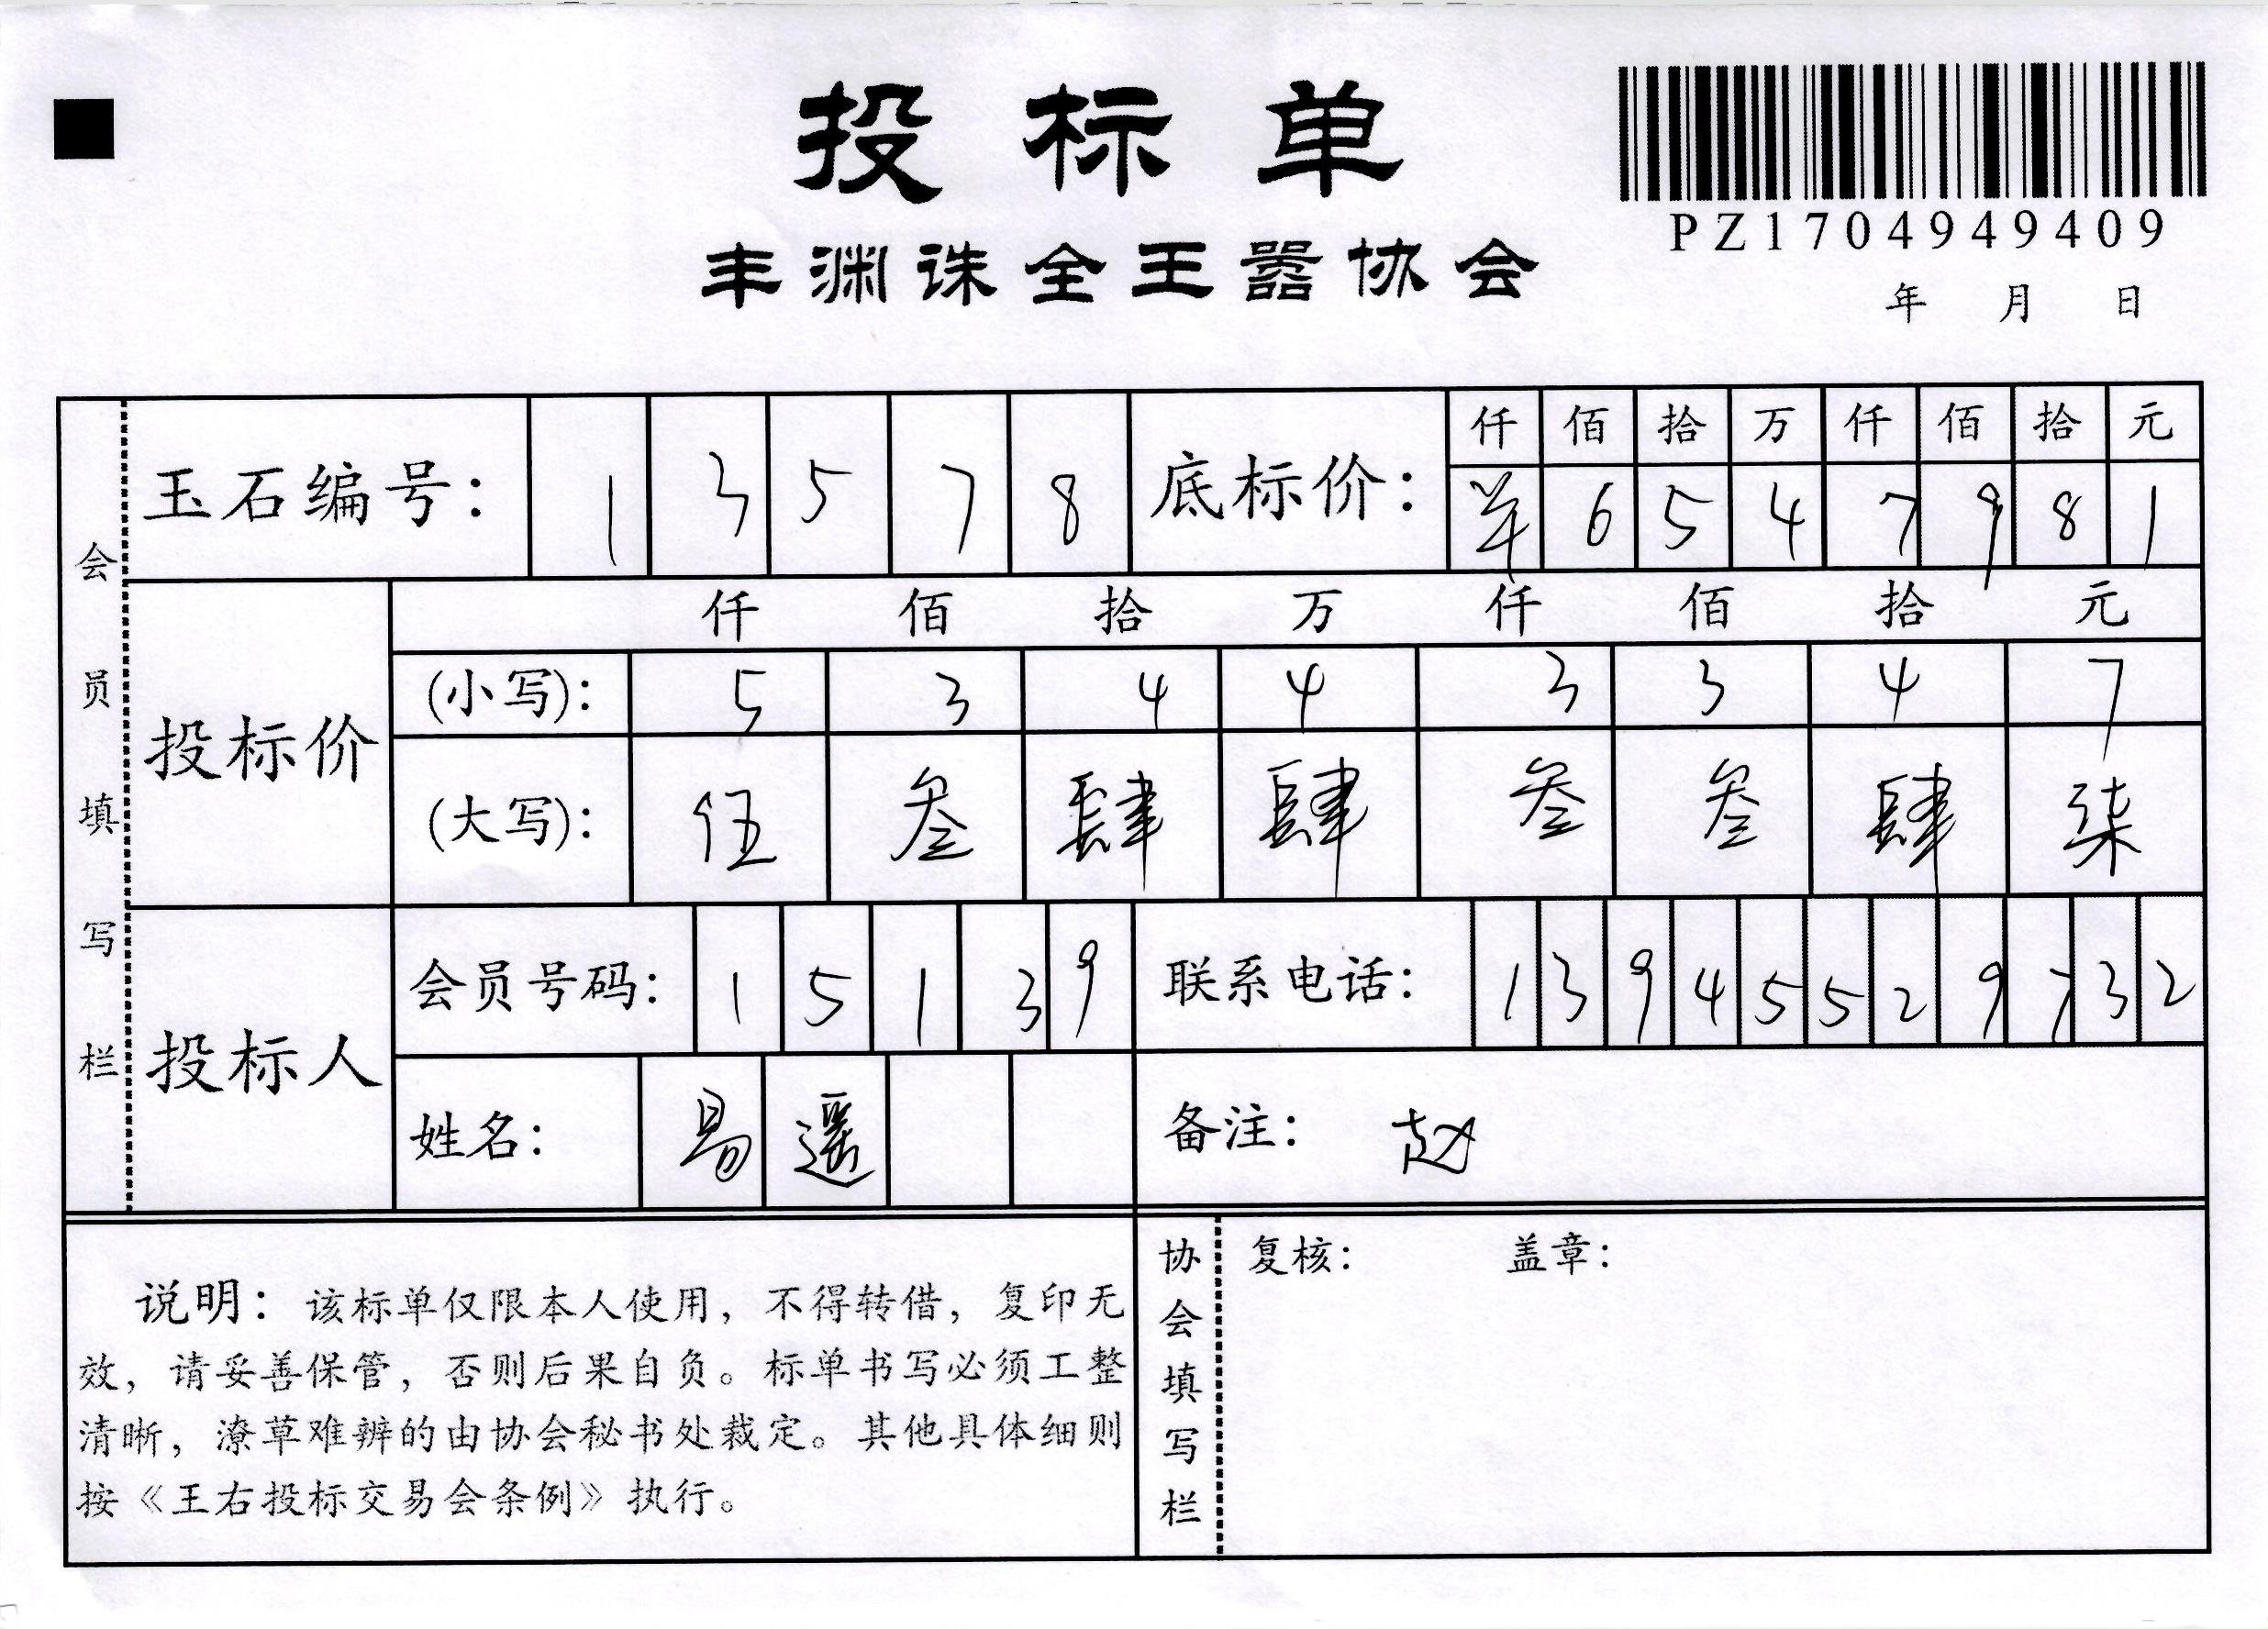 投标单
PZ1704949409
丰渊诛全王嚣协会
年 月 日
会员填写栏
玉石编号: 1 3 5 7 8
底标价: 仟 佰 拾 万 仟 佰 拾 元
6 5 4 7 9 8 1
投标价
仟 佰 拾 万 仟 佰 拾 元
(小写): 5 3 4 4 3 3 4 7
(大写): 伍 叁 肆 肆 叁 叁 肆 柒
投标人
会员号码: 1 5 1 3 9
联系电话: 1 3 9 4 5 5 2 9 7 3 2
姓名: 易 遥
备注: 赵
说明: 该标单仅限本人使用, 不得转借, 复印无
效, 请妥善保管, 否则后果自负。标单书写必须工整
清晰, 潦草难辨的由协会秘书处裁定。其他具体细则
按《王右投标交易会条例》执行。
协会填写栏
复核: 盖章: